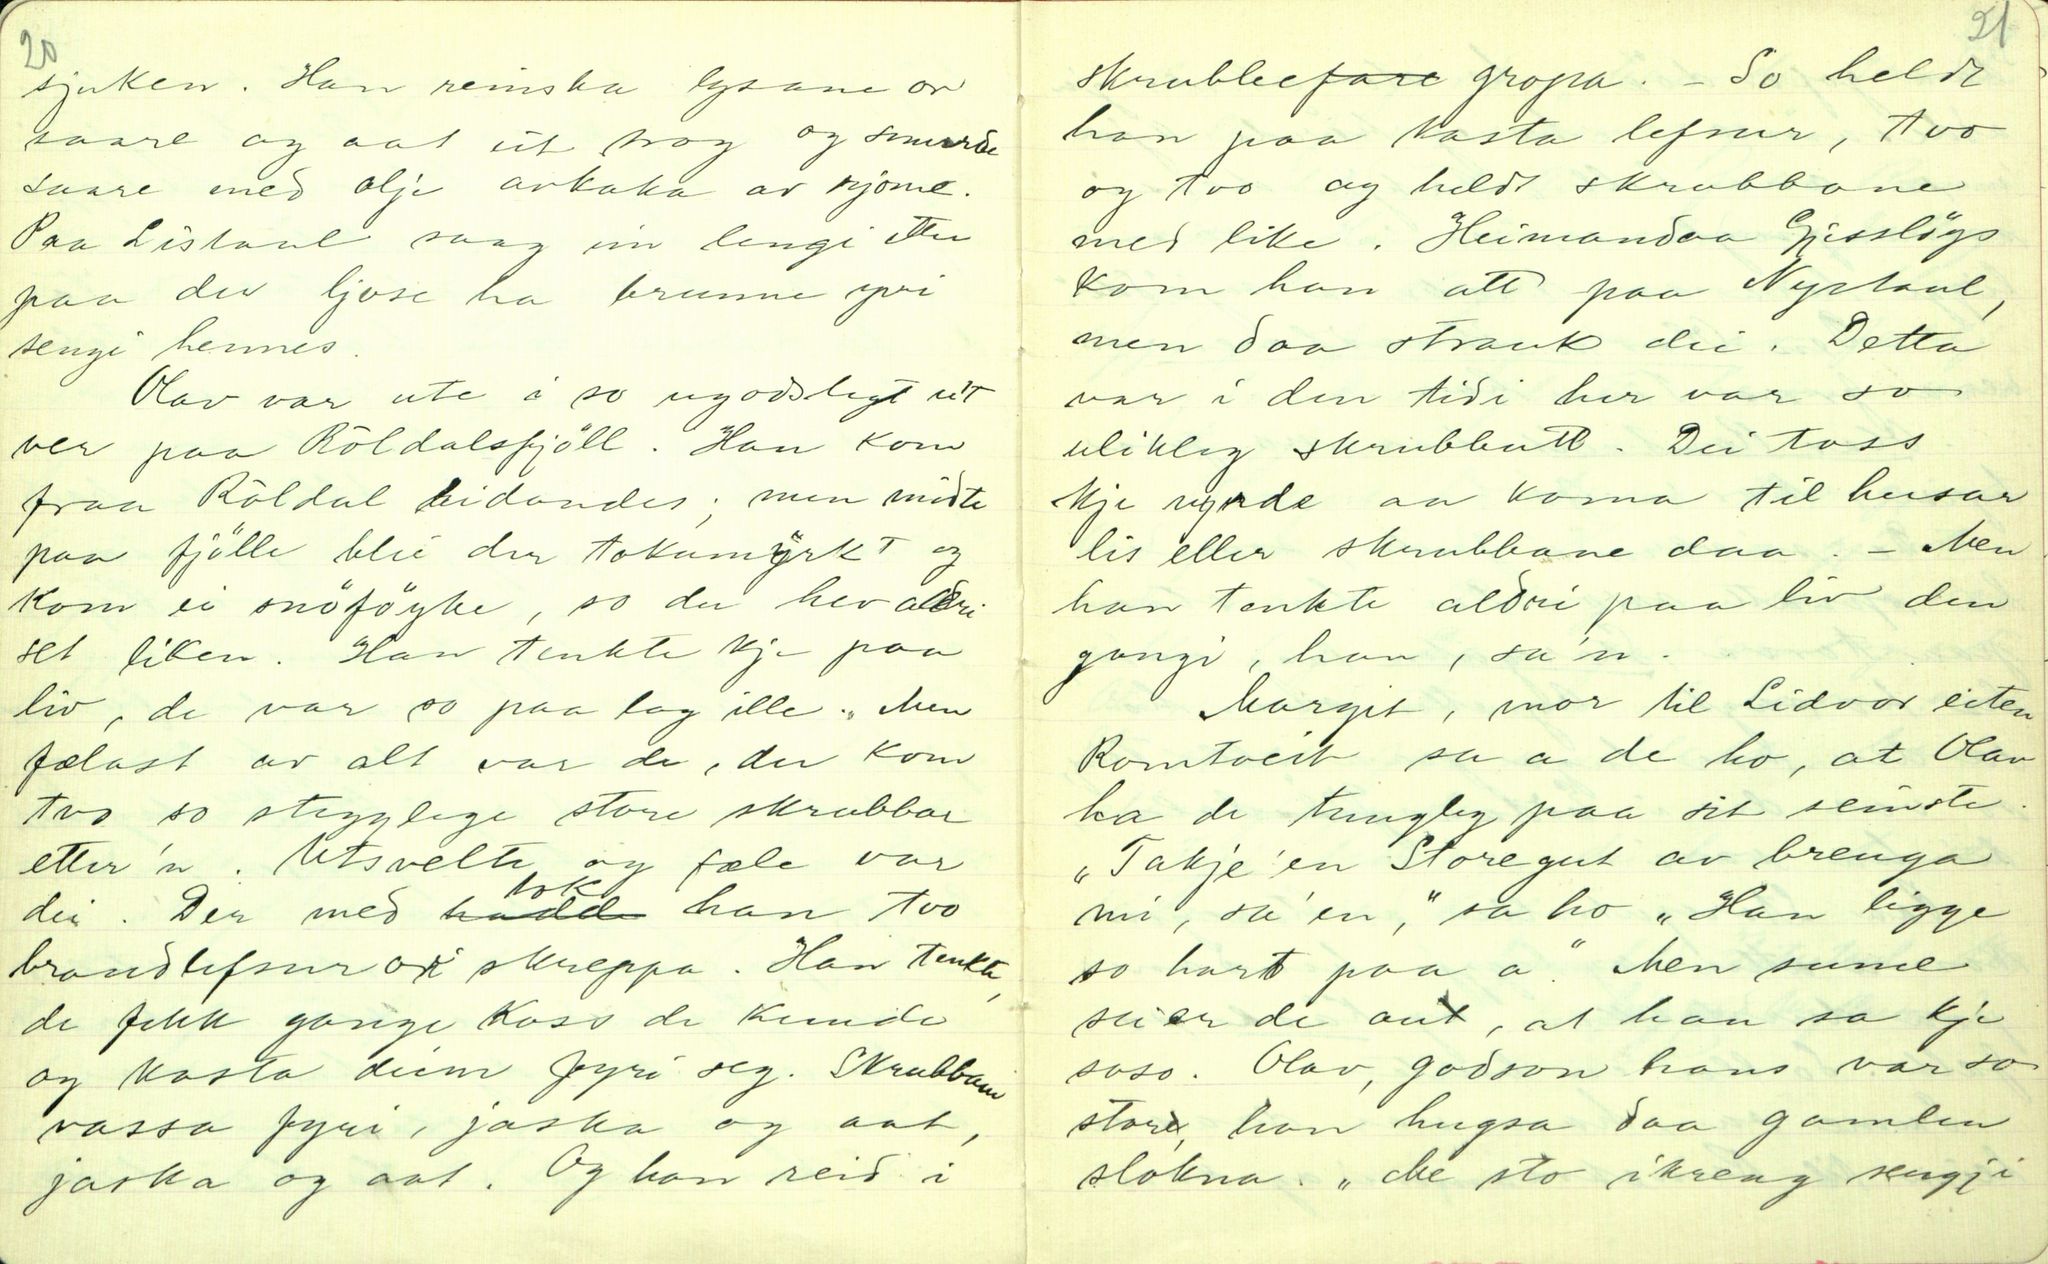 20
sjuken. Han reinska lysane or
saare og aat ut trog og smurde
saare med olje avkaka av rjome.
Paa Listaul saag ein lengi etter
paa der ljose ha brunne yvi
sengi hennes.
Olav var ute i so ugodslegt ut
ver paa Röldalsfjöll. Han kom
fraa Röldal ridandes; men midte
paa fjölle blei der tokamyrkt og
kom ei snöföyke, so du hev aldri
set liken. Han tenkte kje paa
liv, de var so paa lag ille. Men
fælast av alt var de, der kom
tvo so stygglege store skrubbar
etter 'n. Utsvelte og fæle var
dei. Der med hadde tok han tvo
braudlefsur ori skreppa. Han tenkte,
de fekk gange koss de kunde
og kasta deim fyri seg. Skrubban
vassa fyri, jaska og aat,
jaska og aat. Og han reid i
21
skrubleefare gropa. - So heldt
han paa kasta lefsur, tvo
og tvo og heldt skrubbane
med like. Heimandaa Gjesslögs
kom han att paa Nystaul,
men daa strauk dei. Detta
var i den tidi her var so
ulikleg skrubbatt. Dei toss
kje nyrde aa koma til husar
lis eller skrubbane daa. - Men
han tenkte aldri paa liv den
gongi, han, sa'n.
Margit, mor til Lidvor eiten
Romtveit sa a de ho, at Olav
ha de tungleg paa sit seinste.
„Takje 'en Storegut av brenga
mi, sa 'en," sa ho „Han ligge
so hart paa a." Men sume
seier de ant, at han sa kje
soso. Olav, godson hans var so
store, han hugsa daa gamlen
slokna. „De sto ikreng sengji